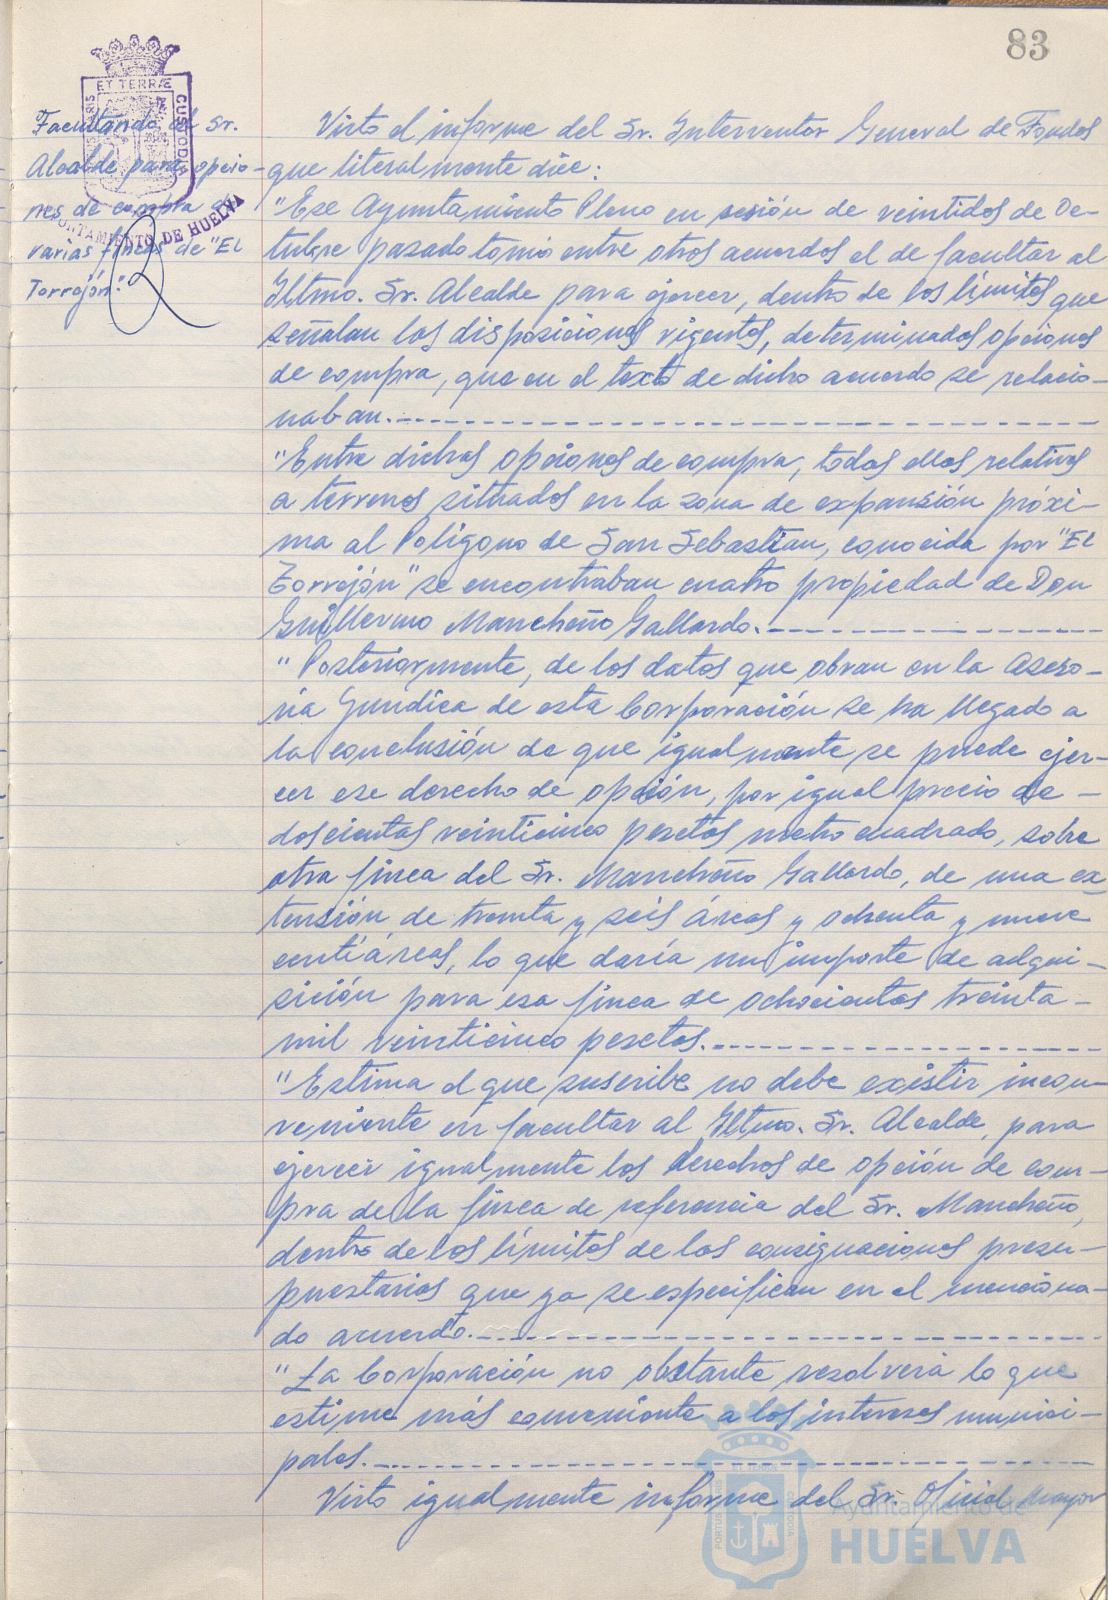 83
ET TERRÆ
CUSTODIA
AYUNTAMIENTO DE HUELVA
Facultando al Sr.
Alcalde para opcio-
nes de compra en
varias fincas de "El
Torrejón".
Visto el informe del Sr. Interventor General de Fondos
que literalmente dice:
"Ese Ayuntamiento Pleno en sesión de veintidos de Oc-
tubre pasado tomó entre otros acuerdos el de facultar al
Iltmo. Sr. Alcalde para ejercer, dentro de los límites que
señalan las disposiciones vigentes, determinadas opciones
de compra, que en el texto de dicho acuerdo se relacio-
naban.
"Entre dichas opciones de compra, todas ellas relativas
a terrenos situados en la zona de expansión próxi-
ma al Polígono de San Sebastian, conocida por "El
Torrejón" se encontraban cuatro propiedad de Don
Guillermo Mancheño Gallardo.
"Posteriormente, de los datos que obran en la Aseso-
ria Jurídica de esta Corporación se ha llegado a
la conclusión de que igualmente se puede ejer-
cer ese derecho de opción, por igual precio de -
doscientas veinticinco pesetas metro cuadrado, sobre
otra finca del Sr. Mancheño Gallardo, de una ex
tensión de treinta y seis áreas y ochenta y nueve
centiáreas, lo que daría un importe de adqui-
sición para esa finca de ochocientas treinta -
mil veinticinco pesetas.
"Estima el que suscribe no debe existir incon-
veniente en facultar al Iltmo. Sr. Alcalde, para
ejercer igualmente los derechos de opción de com-
pra de la finca de referencia del Sr. Mancheño,
dentro de los límites de las consignaciones presu-
puestarias que ya se especifican en el menciona-
do acuerdo.
"La Corporación no obstante resolverá lo que
estime más conveniente a los intereses munici-
pales.
Visto igualmente informe del Sr. Oficial Mayor
Ayuntamiento de
HUELVA